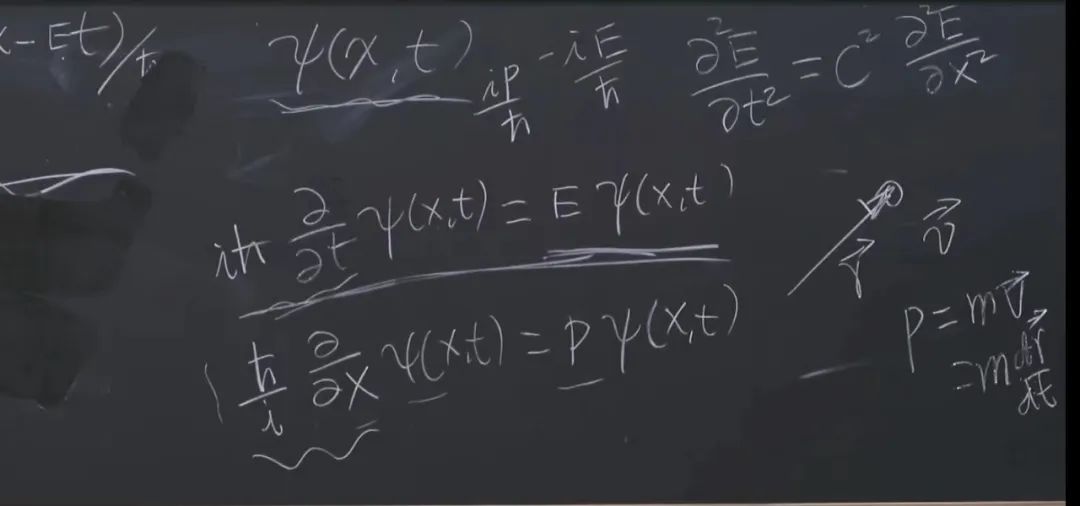 x - Et)/ħ
ψ(x,t)
iP/ħ
-iE/ħ
∂²E/∂t² = C² ∂²E/∂x²
iħ ∂/∂t ψ(x,t) = E ψ(x,t)
r⃗
v⃗
ħ/i ∂/∂x ψ(x,t) = P ψ(x,t)
P = mv⃗
= m dr⃗/dt